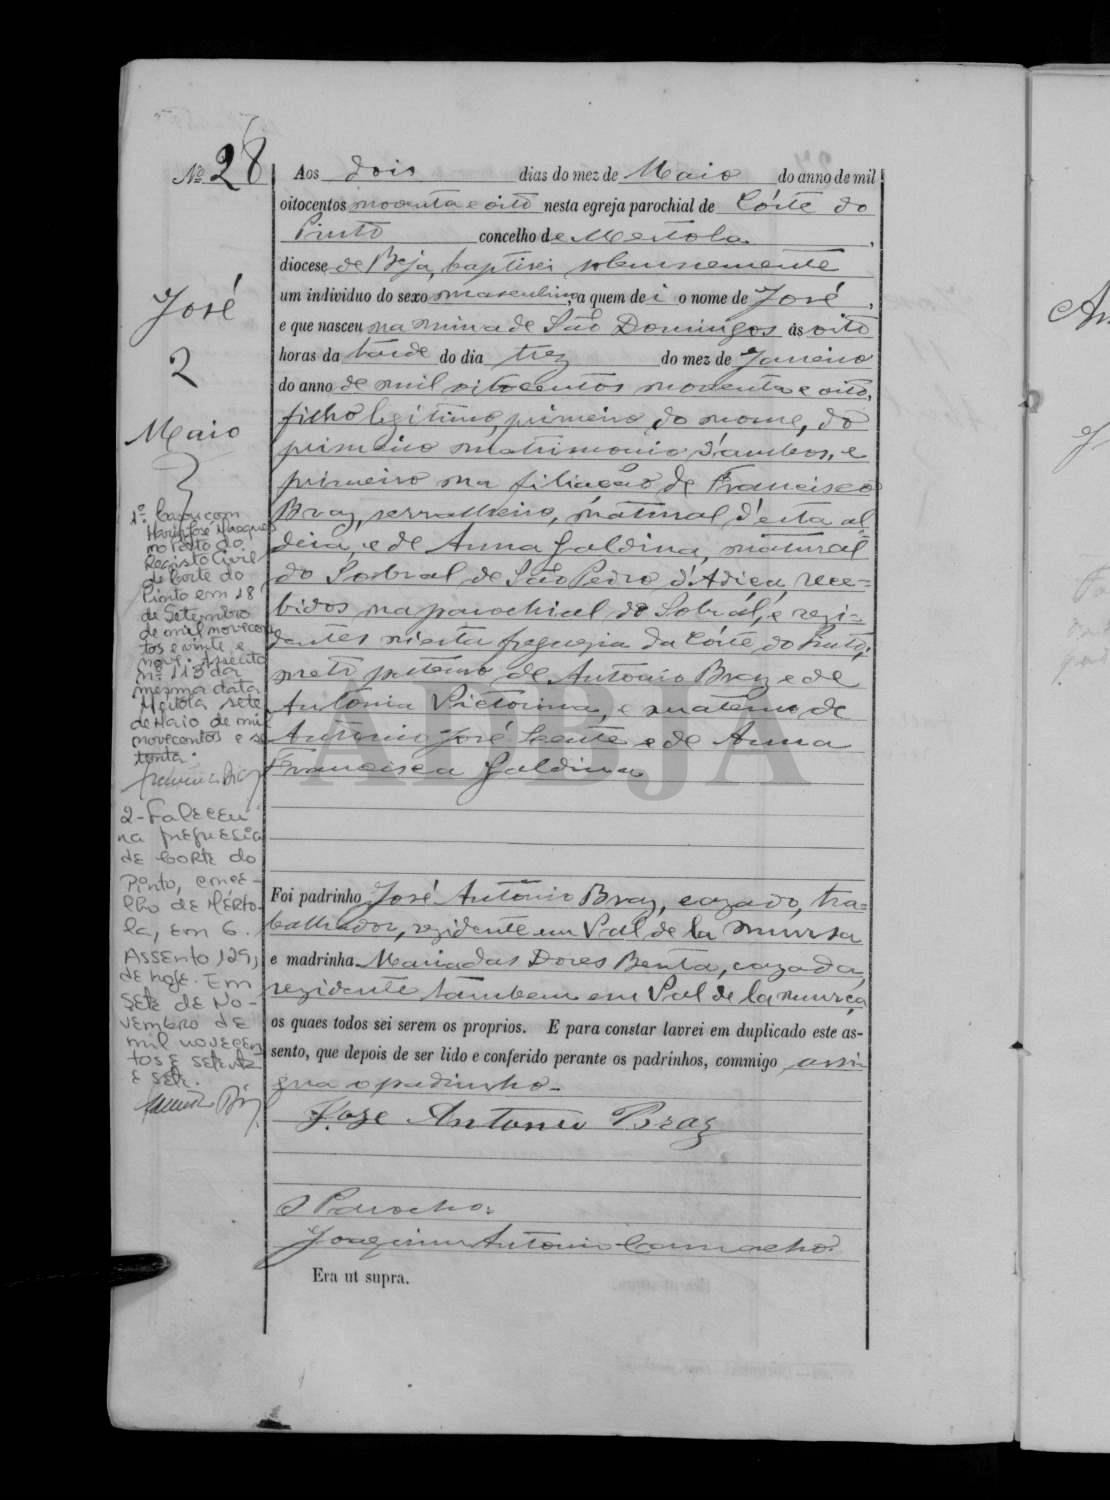 Nº 28
José
2
Maio
1º Casou com
Maria José Marques
no Posto do
Registo Civil
de Corte do
Pinto em 18
de Setembro
de mil novecen
tos e vinte e
nove. Assento
nº 113 da
mesma data
Mértola sete
de Maio de mil
novecentos e se
tenta.
2-Faleceu
na freguesia
de Corte do
Pinto, conce-
lho de Mérto-
la, em 6.
Assento 129,
de hoje. Em
sete de No-
vembro de
mil novecen
tos e setenta
e sete.
Aos dois dias do mez de Maio do anno de mil
oitocentos noventa e oito nesta egreja parochial de Córte do
Pinto concelho de Mertola,
diocese de Beja, baptisei solemnemente
um individuo do sexo masculino, a quem dei o nome de José,
e que nasceu na mina de São Domingos ás oito
horas da tarde do dia trez do mez de Janeiro
do anno de mil oitocentos noventa e oito,
filho legitimo, primeiro do nome, do
primeiro matrimonio d'ambos, e
primeiro na filiação de Francisco
Braz, serralheiro, natural d'esta al-
deia, e de Anna Galdina, natural
do Sobral de São Pedro d'Adiça, rece-
bidos na parochial do Sobral, e rezi-
dentes n'esta freguezia da Côrte do Pinto,
neto paterno de Antonio Braz e de
Antonia Victorina, e materno de
Antonio José e de Anna
Francisca Galdina
Foi padrinho José Antonio Braz, cazado, tra-
balhador, rezidente em Val de la mursa
e madrinha Maria das Dores Benta, cazada,
rezidente tambem em Val de la mursa
os quaes todos sei serem os proprios. E para constar lavrei em duplicado este as-
sento, que depois de ser lido e conferido perante os padrinhos, commigo assi
gna o padrinho.
Joze Antonio Braz
O Parocho:
Joaquim Antonio Camacho.
Era ut supra.
ADBJA